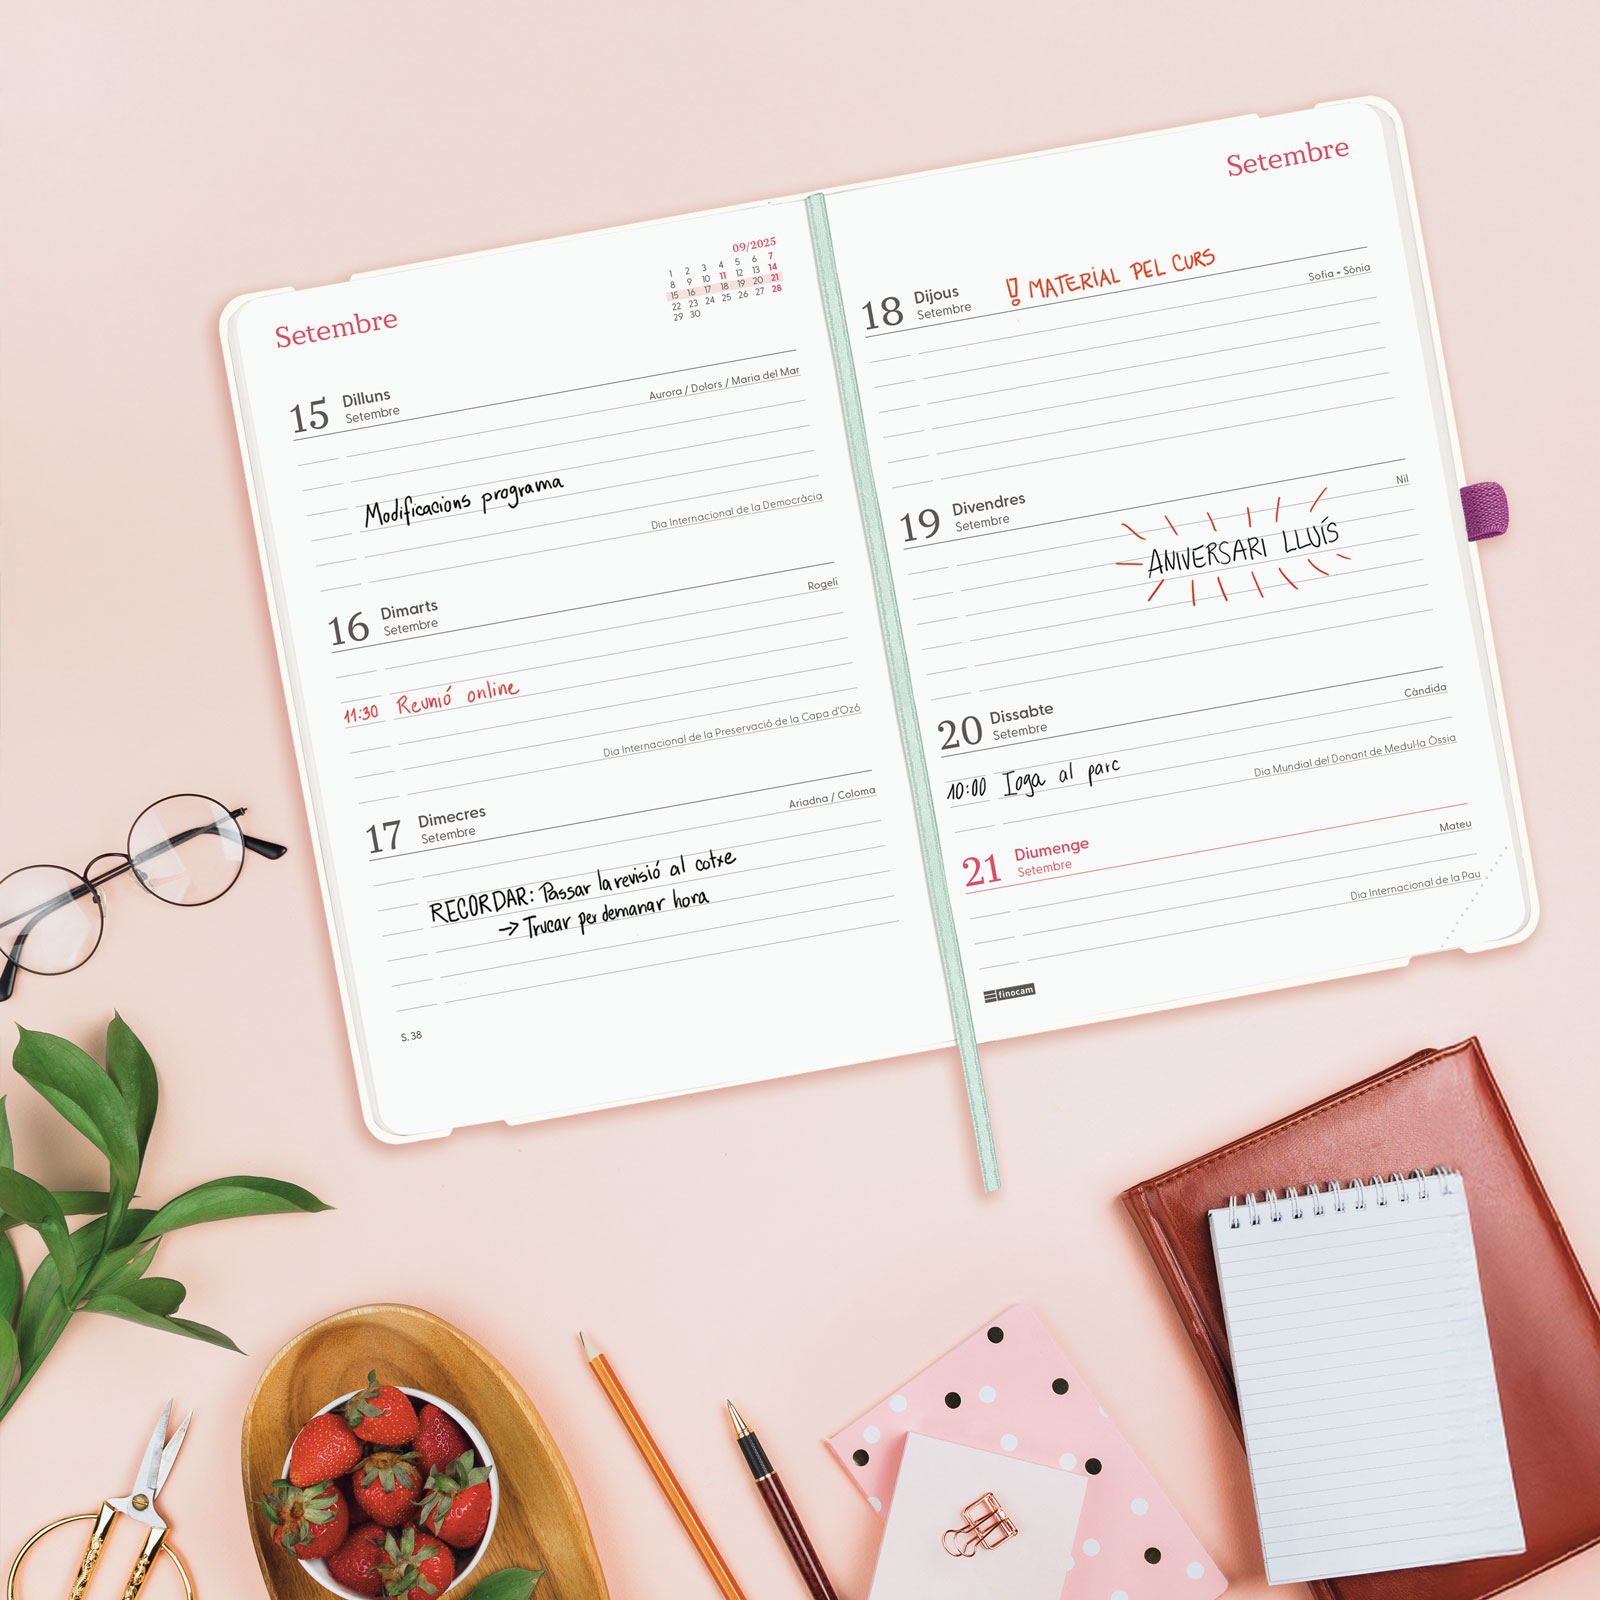 Setembre
09/2025
1 2 3 4 5 6 7
8 9 10 11 12 13 14
15 16 17 18 19 20 21
22 23 24 25 26 27 28
29 30
15 Dilluns
Setembre
Aurora / Dolors / Maria del Mar
Modificacions programa
Dia Internacional de la Democràcia
16 Dimarts
Setembre
Rogeli
11:30 Reunió online
Dia Internacional de la Preservació de la Capa d'Ozó
17 Dimecres
Setembre
Ariadna / Coloma
RECORDAR: Passar la revisió al cotxe
→ Trucar per demanar hora
S. 38
Setembre
18 Dijous
Setembre
! MATERIAL PEL CURS
Sofia • Sònia
19 Divendres
Setembre
Nil
ANIVERSARI LLUÍS
20 Dissabte
Setembre
Càndida
10:00 Ioga al parc
Dia Mundial del Donant de Medul·la Òssia
21 Diumenge
Setembre
Mateu
Dia Internacional de la Pau
finocam